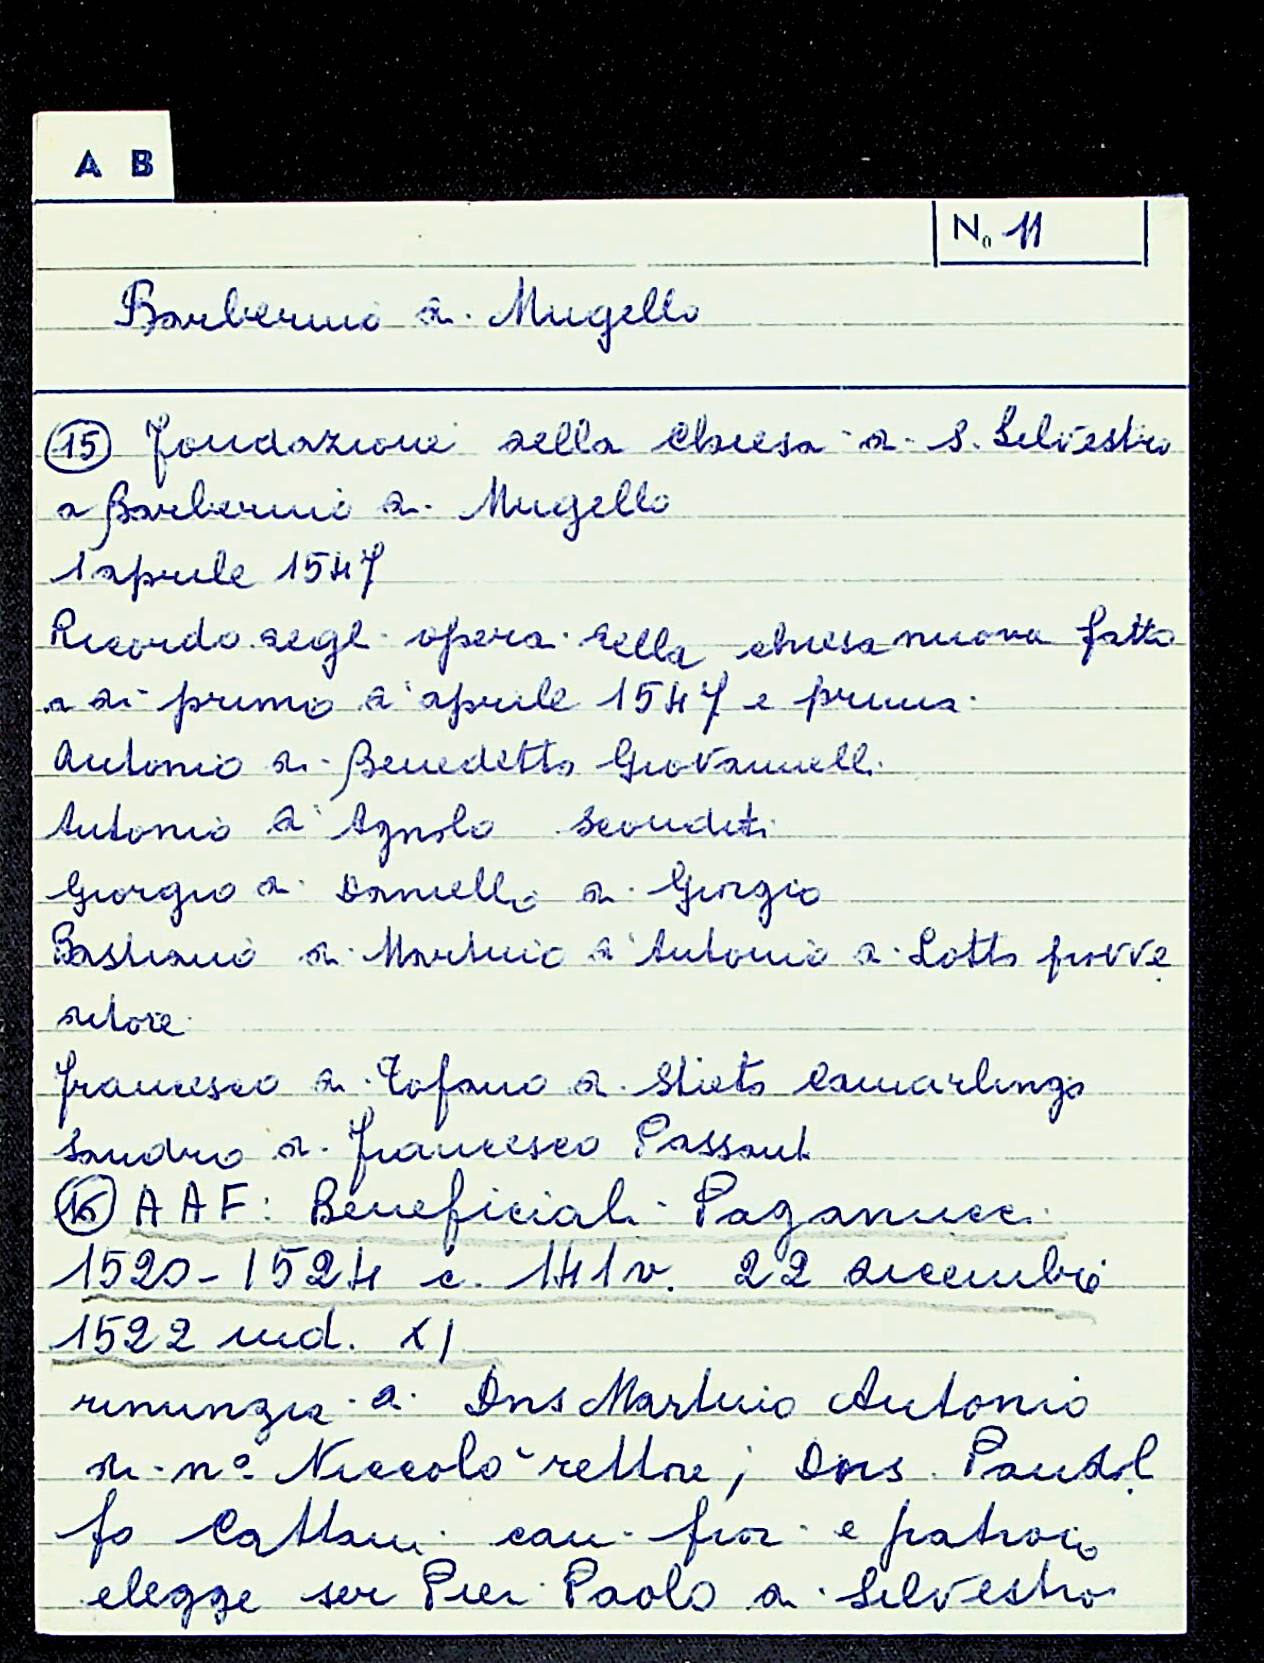 A B
No 11
Barberino di Mugello
15 Fondazione della chiesa di S. Silvestro
a Barberino di Mugello
1 aprile 1547
Ricordo degl operai della chiesa nuova fatto
a di primo d'aprile 1547 e prima
Antonio di Benedetto Giovannelli
Antonio d'Agnolo
Giorgio di Daniello di Giorgio
Bastiano di Martino d'Antonio di Lotto provve
ditore
Francesco di Tofano di camarlingo
Sandro di Francesco Passanti
16 AAF: Beneficiali Paganucci
1520-1524 c. 141v. 22 dicembre
1522 ind. XI
rinunzia di Dns Martino Antonio
di n° Niccolò rettore; Dns Pandol
fo Cattani can fior e patrono
elegge ser Pier Paolo di Silvestro